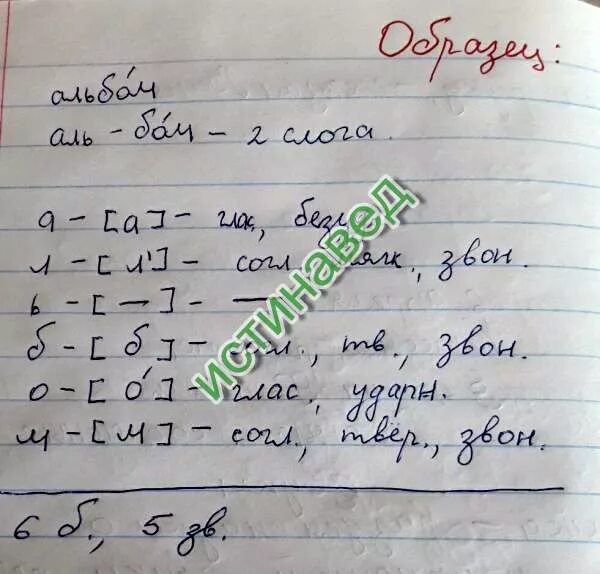 Образец:
альбо́м
аль - бо́м - 2 слога.
а - [а] - глас,
л - [л'] - согл звон.
ь - [—] - —
б - [б] - тв., звон.
о - [о́] - глас., ударн.
м - [м] - согл., твёр., звон.
6 б., 5 зв.
истинавед